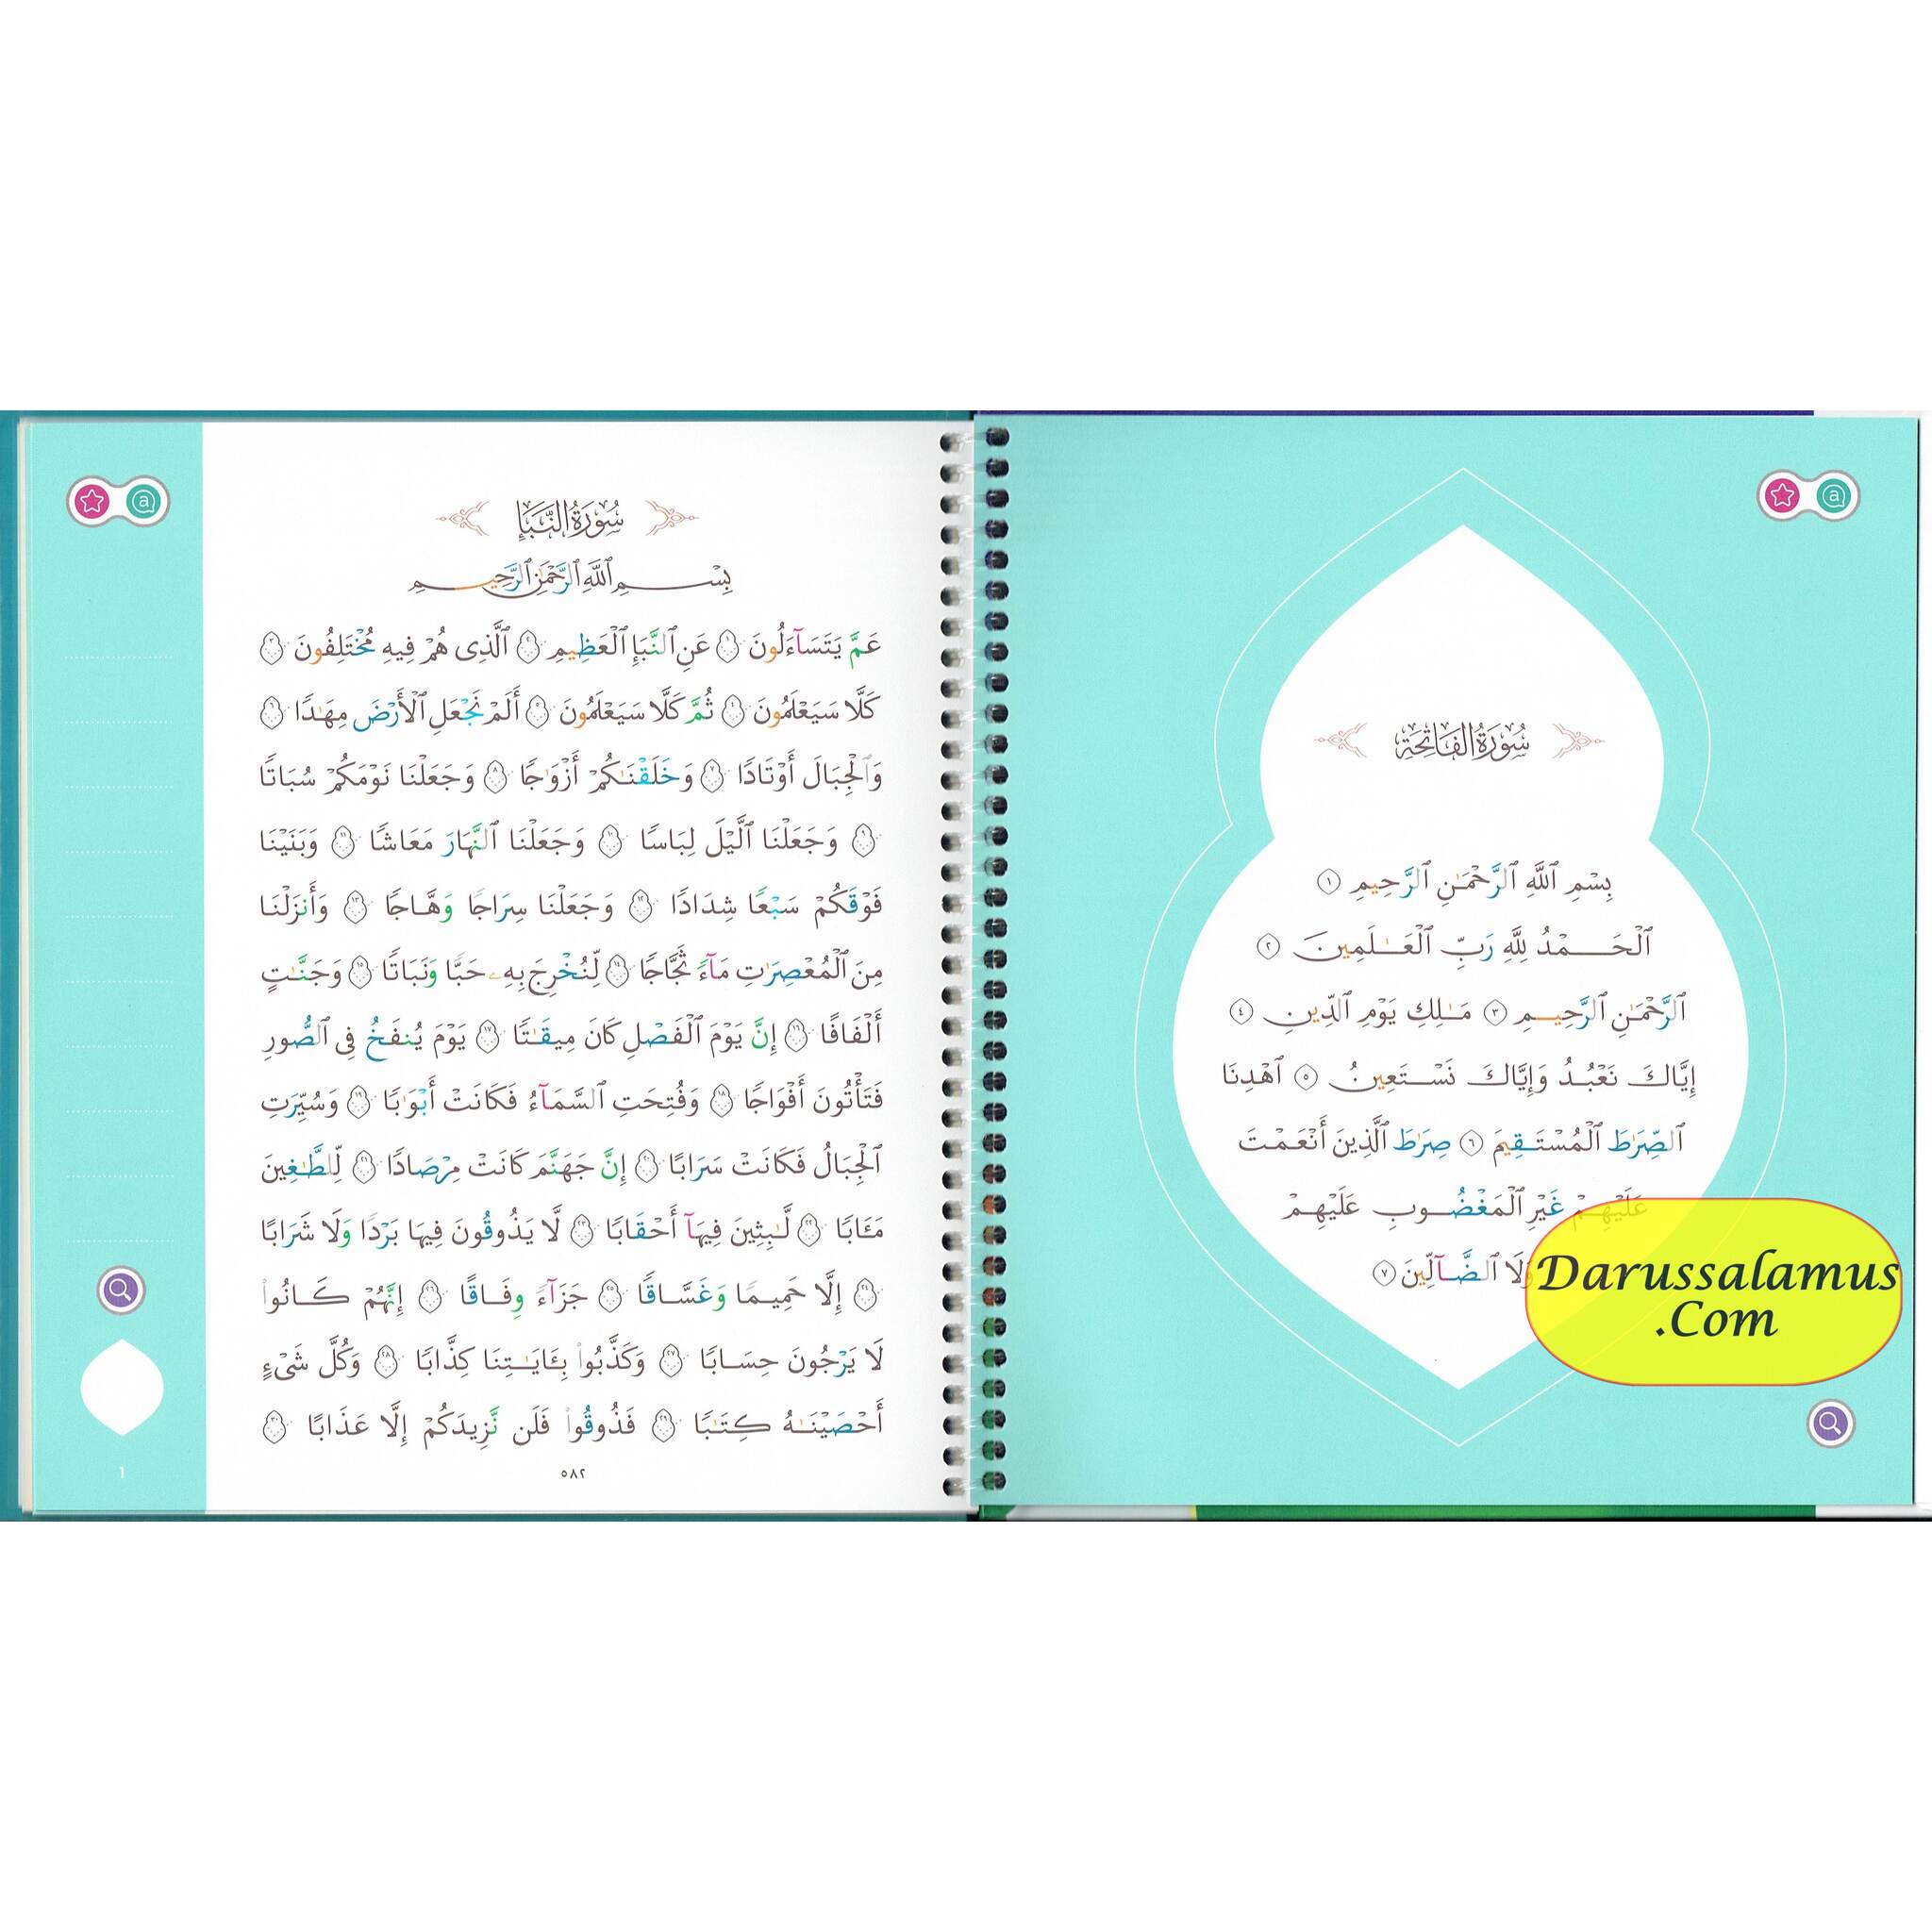 سُورَةُ الفَاتِحَةِ
بِسْمِ ٱللَّهِ ٱلرَّحْمَـٰنِ ٱلرَّحِيمِ ١
ٱلْحَـــمْدُ لِلَّهِ رَبِّ ٱلْعَـٰلَمِينَ ٢
ٱلرَّحْمَـٰنِ ٱلرَّحِيـمِ ٣ مَـٰلِكِ يَوْمِ ٱلدِّينِ ٤
إِيَّاكَ نَعْبُـدُ وَإِيَّاكَ نَسْـتَعِينُ ٥ ٱهْدِنَا
ٱلصِّرَٰطَ ٱلْمُسْتَـقِيمَ ٦ صِرَٰطَ ٱلَّذِينَ أَنْعَـمْتَ
عَلَيْهِـمْ غَيْرِ ٱلْمَغْضُـوبِ عَلَيْهِـمْ
وَلَا ٱلضَّـآلِّينَ ٧
Darussalamus
.Com
سُورَةُ النَّبَإِ
بِسْــمِ ٱللَّهِ ٱلرَّحْمَـٰنِ ٱلرَّحِيــمِ
عَمَّ يَتَسَآءَلُونَ ١ عَنِ ٱلنَّبَإِ ٱلْعَظِيمِ ٢ ٱلَّذِى هُمْ فِيهِ مُخْتَلِفُونَ ٣
كَلَّا سَيَعْلَمُونَ ٤ ثُمَّ كَلَّا سَيَعْلَمُونَ ٥ أَلَمْ نَجْعَلِ ٱلْأَرْضَ مِهَـٰدًا ٦
وَٱلْجِبَالَ أَوْتَادًا ٧ وَخَلَقْنَـٰكُمْ أَزْوَٰجًا ٨ وَجَعَلْنَا نَوْمَكُمْ سُبَاتًا
٩ وَجَعَلْنَا ٱلَّيْلَ لِبَاسًا ١٠ وَجَعَلْنَا ٱلنَّهَارَ مَعَاشًا ١١ وَبَنَيْنَا
فَوْقَكُمْ سَبْعًا شِدَادًا ١٢ وَجَعَلْنَا سِرَاجًا وَهَّـاجًا ١٣ وَأَنزَلْنَا
مِنَ ٱلْمُعْصِرَٰتِ مَآءً ثَجَّاجًا ١٤ لِّنُخْرِجَ بِهِۦ حَبًّا وَنَبَاتًا ١٥ وَجَنَّـٰتٍ
أَلْفَافًا ١٦ إِنَّ يَوْمَ ٱلْفَصْلِ كَانَ مِيقَـٰتًا ١٧ يَوْمَ يُنفَخُ فِى ٱلصُّورِ
فَتَأْتُونَ أَفْوَاجًا ١٨ وَفُتِحَتِ ٱلسَّمَآءُ فَكَانَتْ أَبْوَٰبًا ١٩ وَسُيِّرَتِ
ٱلْجِبَالُ فَكَانَتْ سَرَابًا ٢٠ إِنَّ جَهَنَّمَ كَانَتْ مِرْصَادًا ٢١ لِّلطَّـٰغِينَ
مَـَٔابًا ٢٢ لَّـٰبِثِينَ فِيهَآ أَحْقَابًا ٢٣ لَّا يَذُوقُونَ فِيهَا بَرْدًا وَلَا شَرَابًا
٢٤ إِلَّا حَمِيـمًا وَغَسَّـاقًا ٢٥ جَزَآءً وِفَـاقًا ٢٦ إِنَّهُمْ كَـانُوا۟
لَا يَرْجُونَ حِسَـابًا ٢٧ وَكَذَّبُوا۟ بِـَٔايَـٰتِنَا كِذَّابًا ٢٨ وَكُلَّ شَىْءٍ
أَحْصَيْنَـٰهُ كِتَـٰبًا ٢٩ فَذُوقُوا۟ فَلَن نَّزِيدَكُمْ إِلَّا عَذَابًا ٣٠
٥٨٢
1